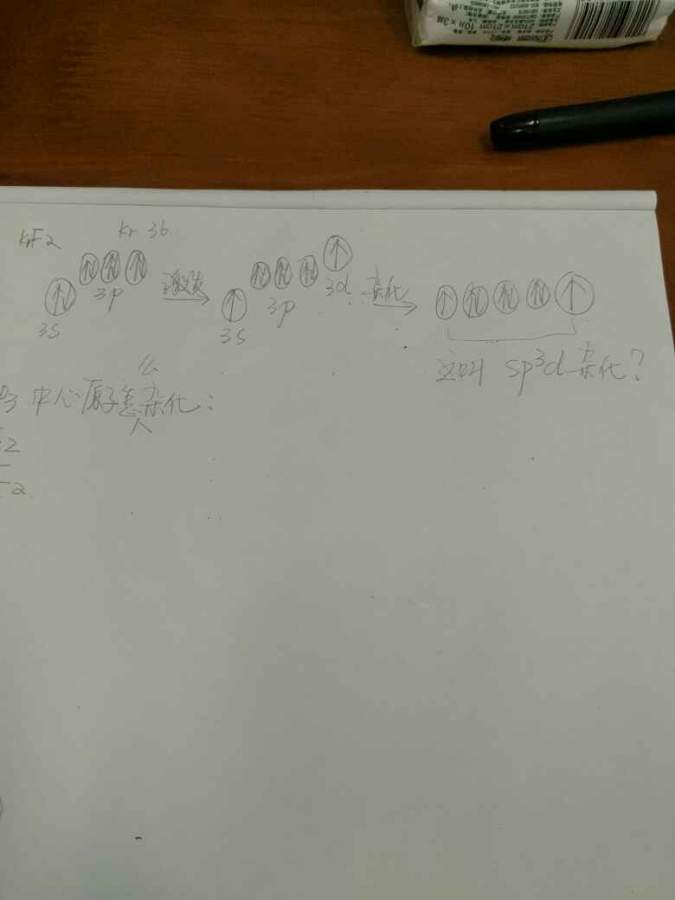 KrF2 Kr 36
3s 3p 激发 3s 3p 3d 杂化
这叫 sp³d 杂化?
中心原子怎么杂化: